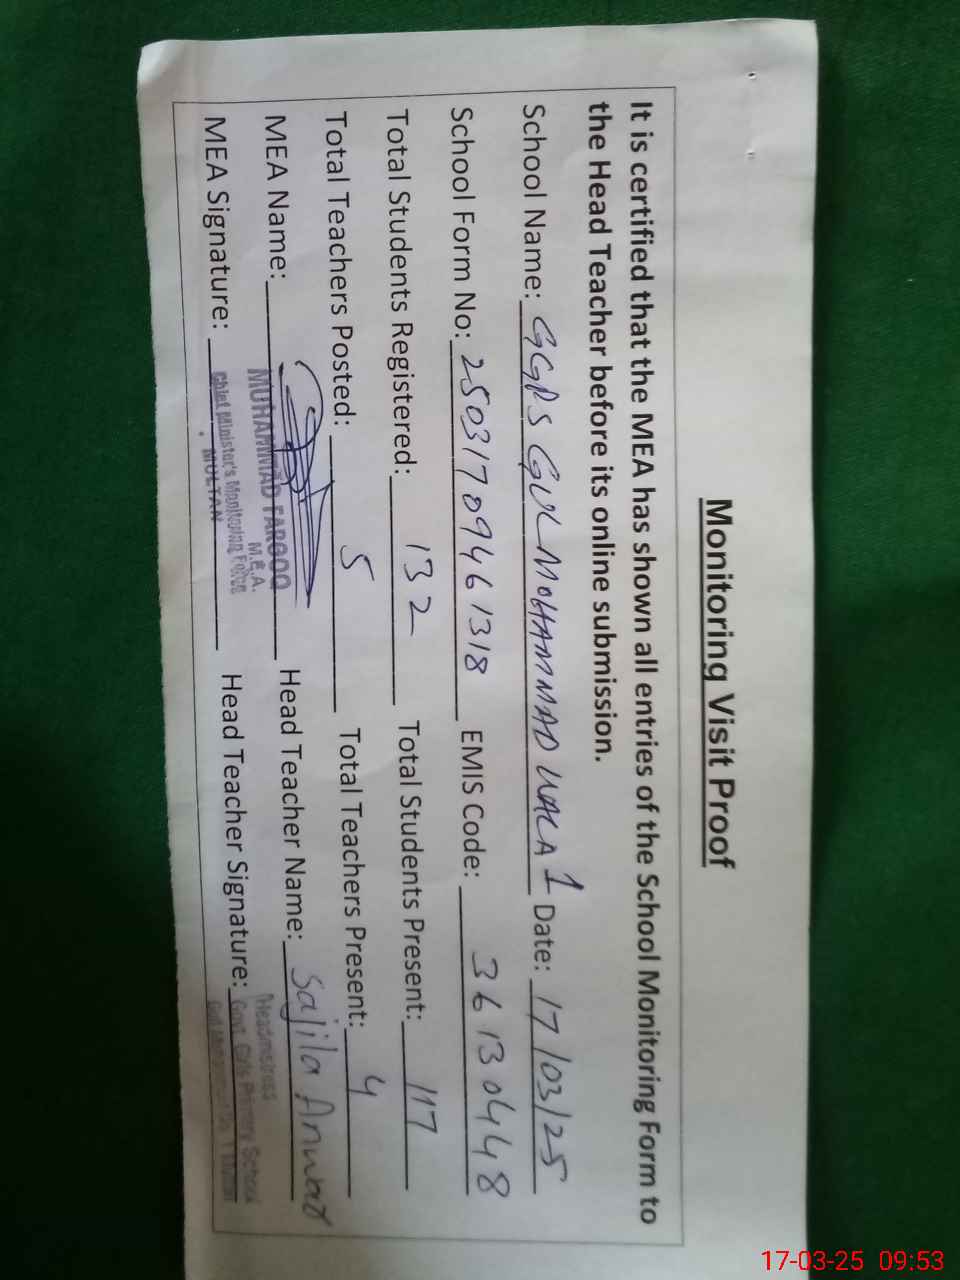 Monitoring Visit Proof
It is certified that the MEA has shown all entries of the School Monitoring Form to
the Head Teacher before its online submission.
School Name: GGPS GUL MOHAMMAD WALA 1 Date: 17/03/25
School Form No: 25031709461318 EMIS Code: 36130448
Total Students Registered: 132 Total Students Present: 117
Total Teachers Posted: 5 Total Teachers Present: 4
MEA Name: Head Teacher Name: Sajila Anwar
MUHAMMAD FAROOQ
M.E.A.
Chief Minister's Monitoring Force
MULTAN
MEA Signature: Head Teacher Signature:
Headmistress
Govt. Girls Primary School
17-03-25 09:53